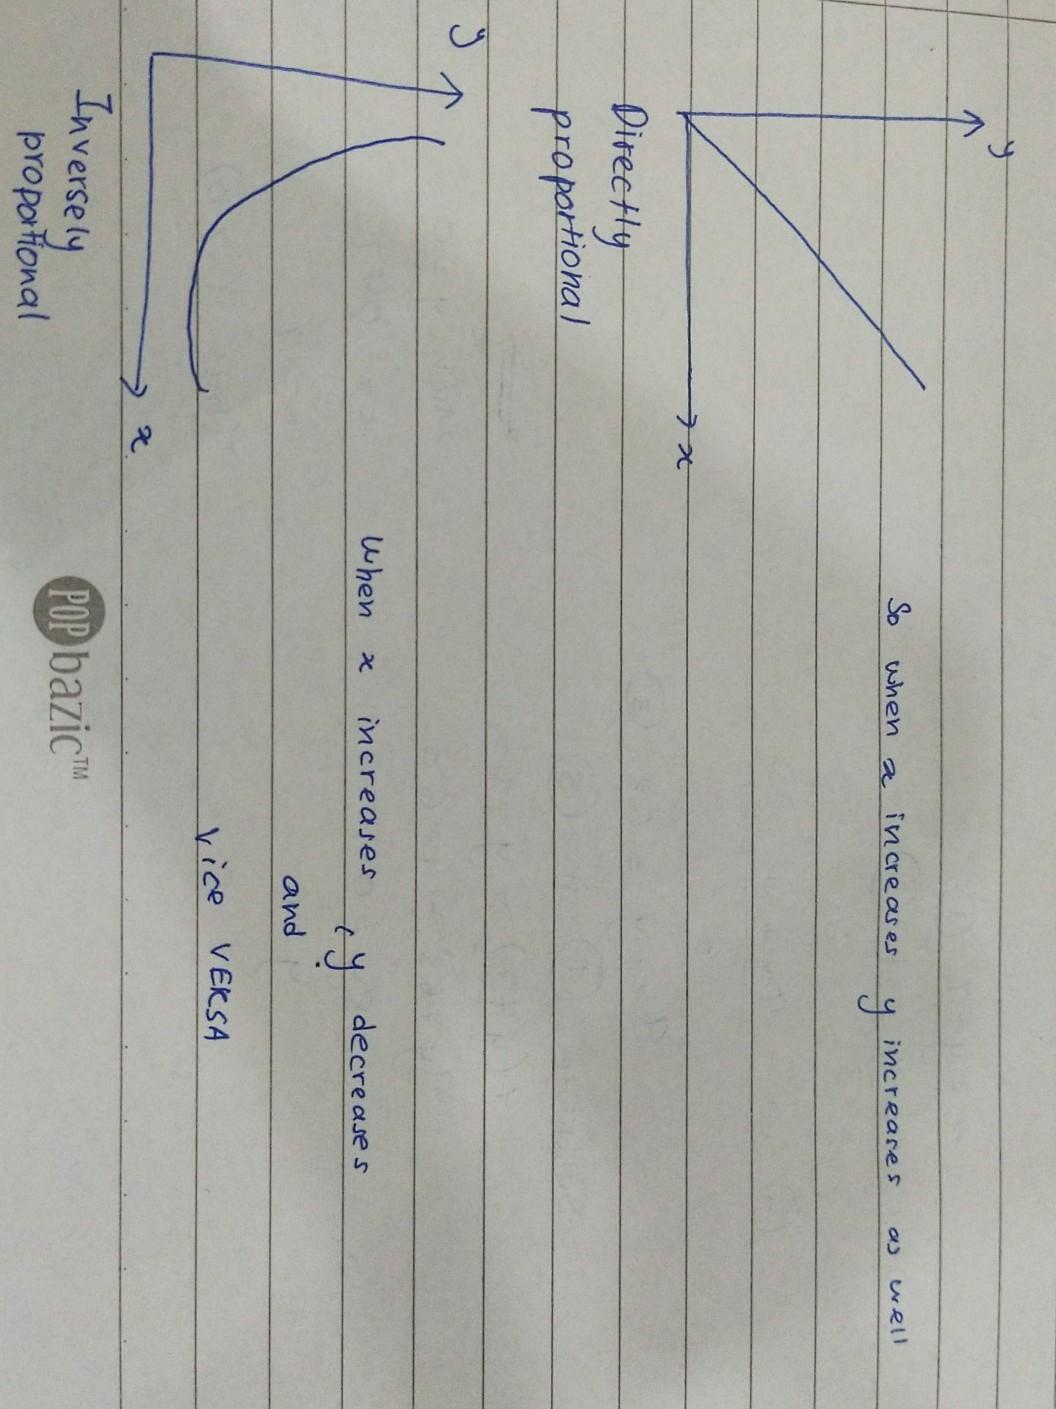 y
So when x increases y increases as well
x
Directly
proportional
y
When x increases , y decreases
and
Vice VERSA
x
Inversely
proportional
POP bazic™